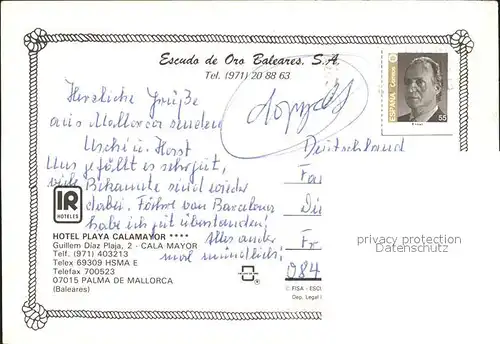 Escudo de Oro Baleares. S.A.
Tel. (971) 20 88 63
ESPAÑA
Correos
55
Herzliche Grüße
aus Mallorca senden
Uschi u. Horst
Uns gefällt es sehr gut,
viele Bekannte sind wieder
dabei. Fähre von Barcelona
habe ich gut überstanden!
Alles andere
mal mündlich,
Deutschland
Fa
Dü
Fr
084
IR
HOTELES
HOTEL PLAYA CALAMAYOR ****
Guillem Díaz Plaja, 2 - CALA MAYOR
Telf. (971) 403213
Telex 69309 HSMA E
Telefax 700523
07015 PALMA DE MALLORCA
(Baleares)
© FISA - ESC
Dep. Legal
privacy protection
oldthing.de